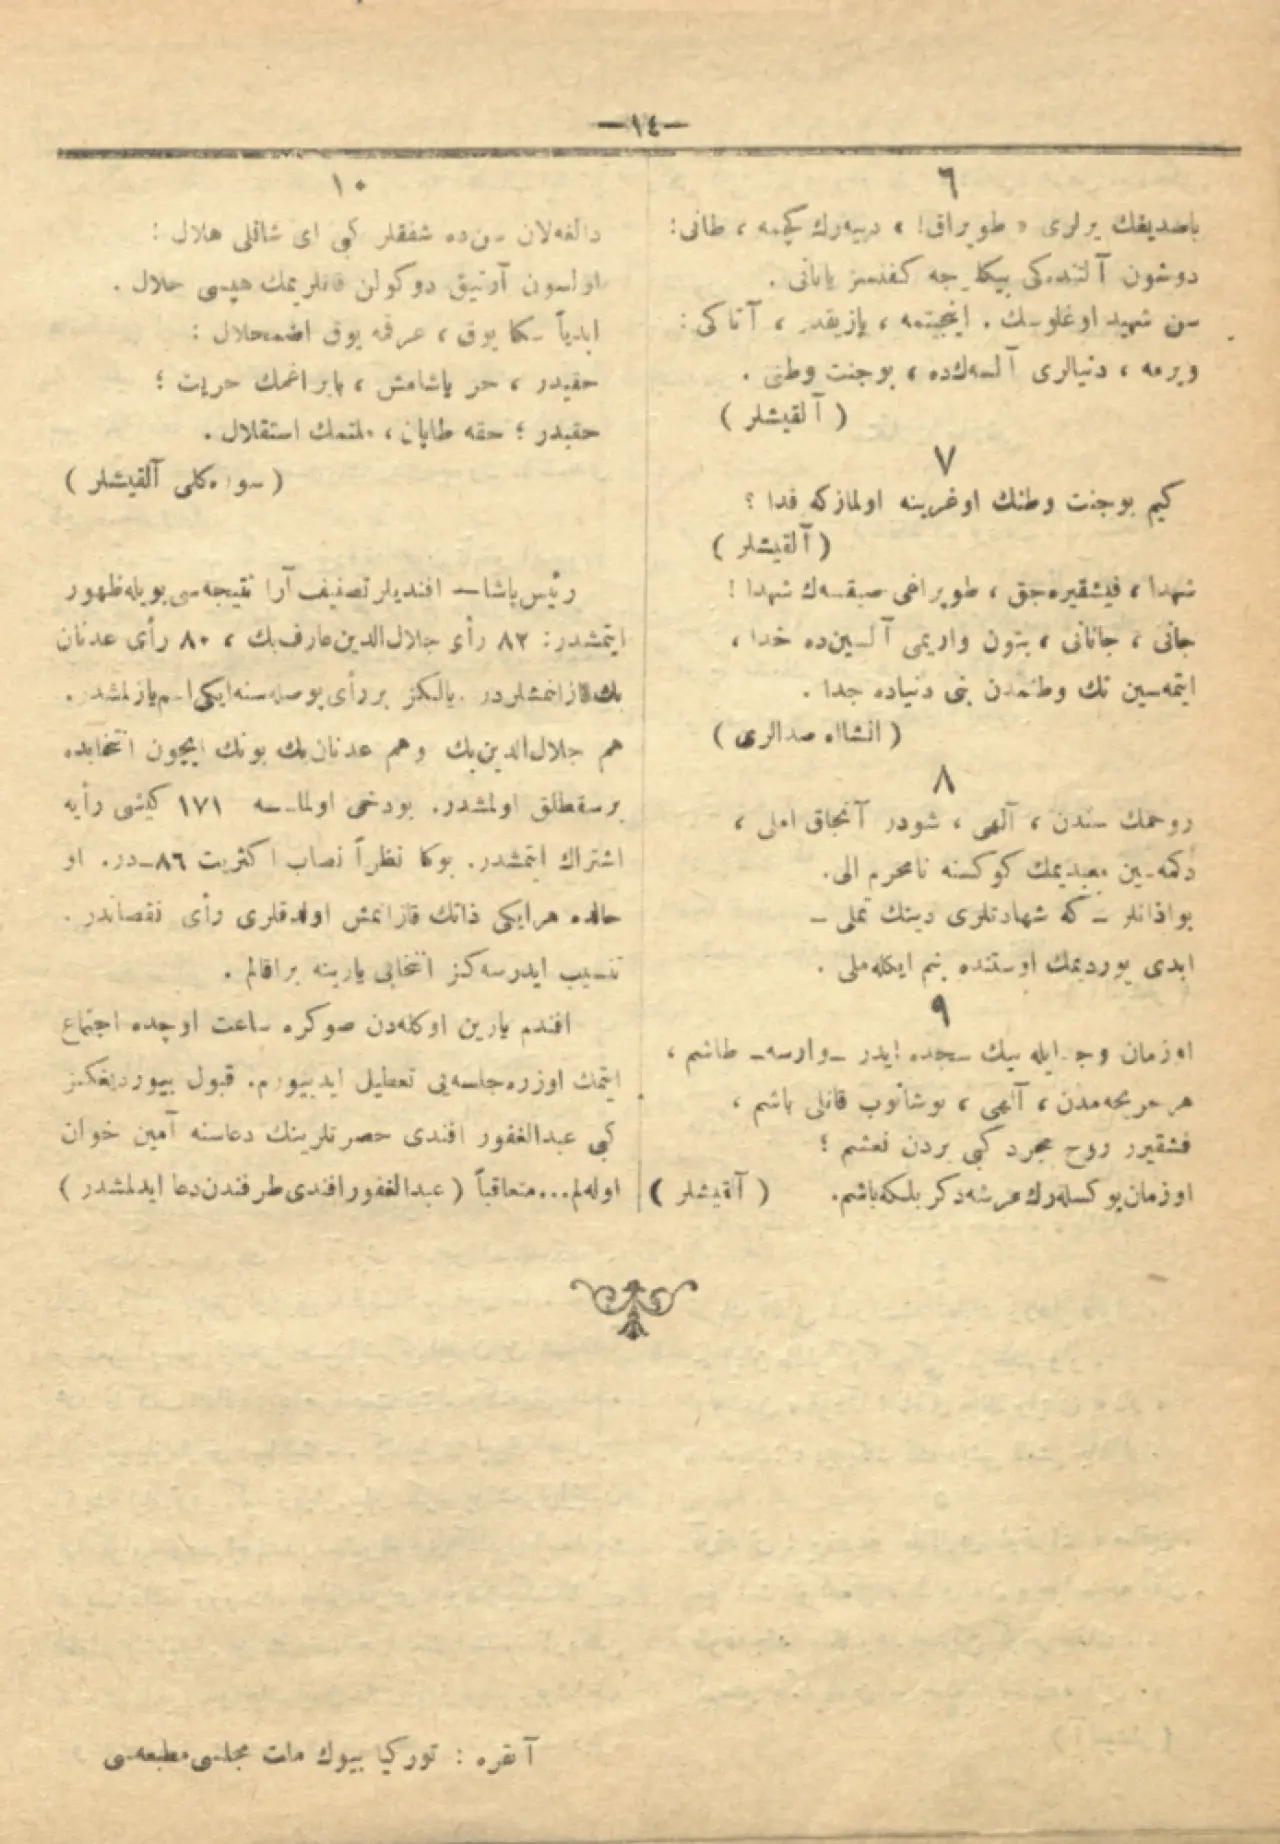 —١٤—
٦
باصديغك يرلرى « طوپراق! » دييه‌رك كچمه ، طانى:
دوشون آلتنده‌كى بيكلرجه كفنسز ياتانى .
سن شهيد اوغلوسك . اينجيتمه ، يازيقدر ، آتاكى :
ويرمه ، دنيالرى آلسه‌ك‌ده ، بوجنت وطنى .
( آلقيشلر )
٧
كيم بوجنت وطنك اوغرينه اولمازكه فدا ؟
( آلقيشلر )
شهدا ، فيشقيره‌جق ، طوپراغى صيقسه‌ك شهدا !
جانى ، جانانى ، بتون واريمى آلسين‌ده خدا ،
ايتمه‌سين تك وطنمدن بنى دنياده جدا .
( انشاالله صدالرى )
٨
روحمك سندن ، آلهى ، شودر آنجاق املى ،
دكمه‌سين معبديمك كوكسنه نامحرم الى.
بواذانلر ــ كه شهادتلرى دينك تملى ــ
ابدى يورديمك اوستنده بنم ايكله‌ملى .
٩
اوزمان وجد ايله بيك سجده ايدر ــ وارسه ــ طاشم ،
هر جريحه‌مدن ، آلهى ، بوشانوب قانلى ياشم ،
فشقيرر روح مجرد كبى يردن نعشم ؛
اوزمان يوكسله‌رك عرشه دكر بلكه باشم. ( آلقيشلر )
١٠
دالغه‌لان سن‌ده شفقلر كبى اى شانلى هلال :
اولسون آرتيق دوكولن قانلريمك هپسى حلال .
ابدياً سكا يوق ، عرقمه يوق اضمحلال :
حقيدر ، حر ياشامش ، بايراغمك حريت ؛
حقيدر ؛ حقه طاپان ، ملتمك استقلال .
( سوره‌كلى آلقيشلر )
رئيس پاشا — افنديلر تصنيف آرا نتيجه‌سى بويله ظهور
ايتمشدر: ٨٢ رأى جلال‌الدين عارف بك ، ٨٠ رأى عدنان
بك قازانمشلردر . يالكز بر رأى بوصله‌سنه ايكى اسم يازلمشدر .
هم جلال‌الدين بك وهم عدنان بك بونك ايچون انتخابده
برسقطلق اولمشدر. بودخى اولماسه ١٧١ كيشى رأيه
اشتراك ايتمشدر. بوكا نظراً نصاب اكثريت ٨٦ـدر. او
حالده هرايكى ذاتك قازانمش اولدقلرى رأى نقصاندر .
تنسيب ايدرسه‌كز انتخابى يارينه براقالم .
افندم يارين اوكله‌دن صوكره ساعت اوچده اجتماع
ايتمك اوزره جلسه‌يى تعطيل ايدييورم. قبول بيورديغكز
كبى عبدالغفور افندى حضرتلرينك دعاسنه آمين خوان
اوله‌لم... متعاقباً ( عبدالغفور افندى طرفندن دعا ايدلمشدر )
آنقره : توركيا بيوك ملت مجلسى مطبعه‌سى